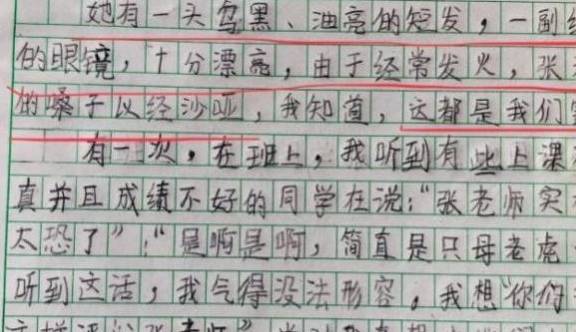 她有一头乌黑、油亮的短发，一副
的眼镜，十分漂亮，由于经常发火，张
的嗓子以经沙哑，我知道，这都是我们
有一次，在班上，我听到有些上课
真并且成绩不好的同学在说：“张老师实
太恐了”；“是啊是啊，简直是只母老虎
听到这话，我气得没法形容，我想“你们